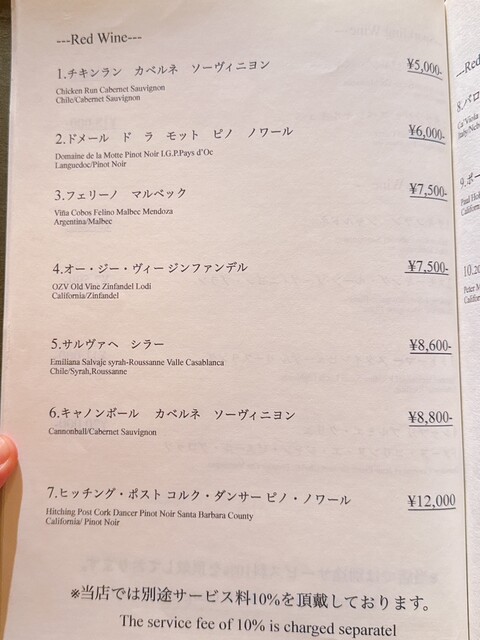 ---Red Wine---
1.チキンラン　カベルネ　ソーヴィニヨン ¥5,000-
Chicken Run Cabernet Sauvignon
Chile/Cabernet Sauvignon
2.ドメール　ド　ラ　モット　ピノ　ノワール ¥6,000-
Domaine de la Motte Pinot Noir I.G.P.Pays d'Oc
Languedoc/Pinot Noir
3.フェリーノ　マルベック ¥7,500-
Viña Cobos Felino Malbec Mendoza
Argentina/Malbec
4.オー・ジー・ヴィー ジンファンデル ¥7,500-
OZV Old Vine Zinfandel Lodi
California/Zinfandel
5.サルヴァへ　シラー ¥8,600-
Emiliana Salvaje syrah-Roussanne Valle Casablanca
Chile/Syrah,Roussanne
6.キャノンボール　カベルネ　ソーヴィニヨン ¥8,800-
Cannonball/Cabernet Sauvignon
7.ヒッチング・ポスト コルク・ダンサー ピノ・ノワール ¥12,000
Hitching Post Cork Dancer Pinot Noir Santa Barbara County
California/ Pinot Noir
※当店では別途サービス料10%を頂戴しております。
The service fee of 10% is charged separatel
---Red
8.バロ
Ca'Viola
Italy/Neb
9.ポー
Paul Hol
California
10.20
Peter M
California